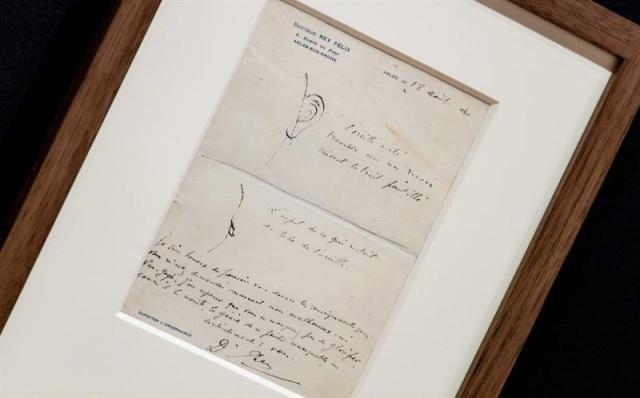 DOCTEUR REY FÉLIX
6, RAMPE DU PONT
ARLES-SUR-RHONE
ARLES, LE 18 août
l'oreille a été
tranchée avec un rasoir
suivant le trait pointillé
L'aspect de ce qui restait
du lobe de l'oreille.
Je suis heureux de pouvoir vous donner les renseignements que
vous m'avez demandés concernant mon malheureux ami
Van Gogh. J'espère que vous ne manquerez pas de glorifier
comme il le mérite, le génie de ce peintre remarquable
Cordialement à vous.
Dr Rey
L'ORDONNANCE